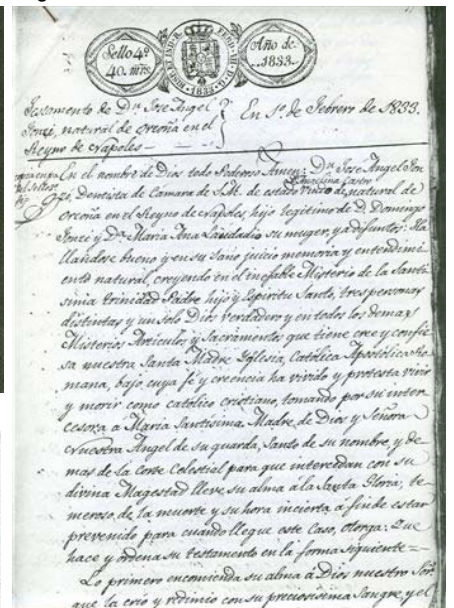 Sello 4º
40. mrs.
HISP. ET IND. R. FERD. VII D. G.
1833
Año de
1833.
Testamento de Dn. Jose Angel
Fonzi, natural de Orcoña en el
Reyno de Napoles
En 1º de Febrero de 1833.
En el nombre de Dios todo Poderoso Amen: Dn. Jose Angel Fon
zi, Dentista de Camara de S.M. de estado viudo de
natural de
Orcoña en el Reyno de Napoles, hijo legitimo de D. Domingo
Fonzi y Da. Maria Ana Laudadio su muger, ya difuntos: Ha
llandose bueno y en su sano juicio memoria y entendimi
ento natural, creyendo en el inefable Misterio de la Santi
sima Trinidad Padre hijo y Espiritu Santo, tres personas
distintas y un solo Dios verdadero y en todos los demas
Misterios Articulos y Sacramentos que tiene cree y confie
sa nuestra Santa Madre Yglesia, Catolica Apostolica Ro
mana, bajo cuya fé y creencia ha vivido y protesta vivir
y morir como catolico cristiano, tomando por su inter
cesora a Maria Santisima Madre de Dios y Señora
Nuestra Angel de su guarda, Santo de su nombre, y de
mas de la Corte Celestial para que intercedan con su
divina Magestad lleve su alma á la Santa Gloria; te
meroso de la muerte y su hora incierta á fin de estar
prevenido para cuando llegue este caso, otorga: Que
hace y ordena su testamento en la forma siguiente =
Lo primero encomienda su alma á Dios nuestro Sor.
que la crio y redimio con su preciosisima Sangre, y el